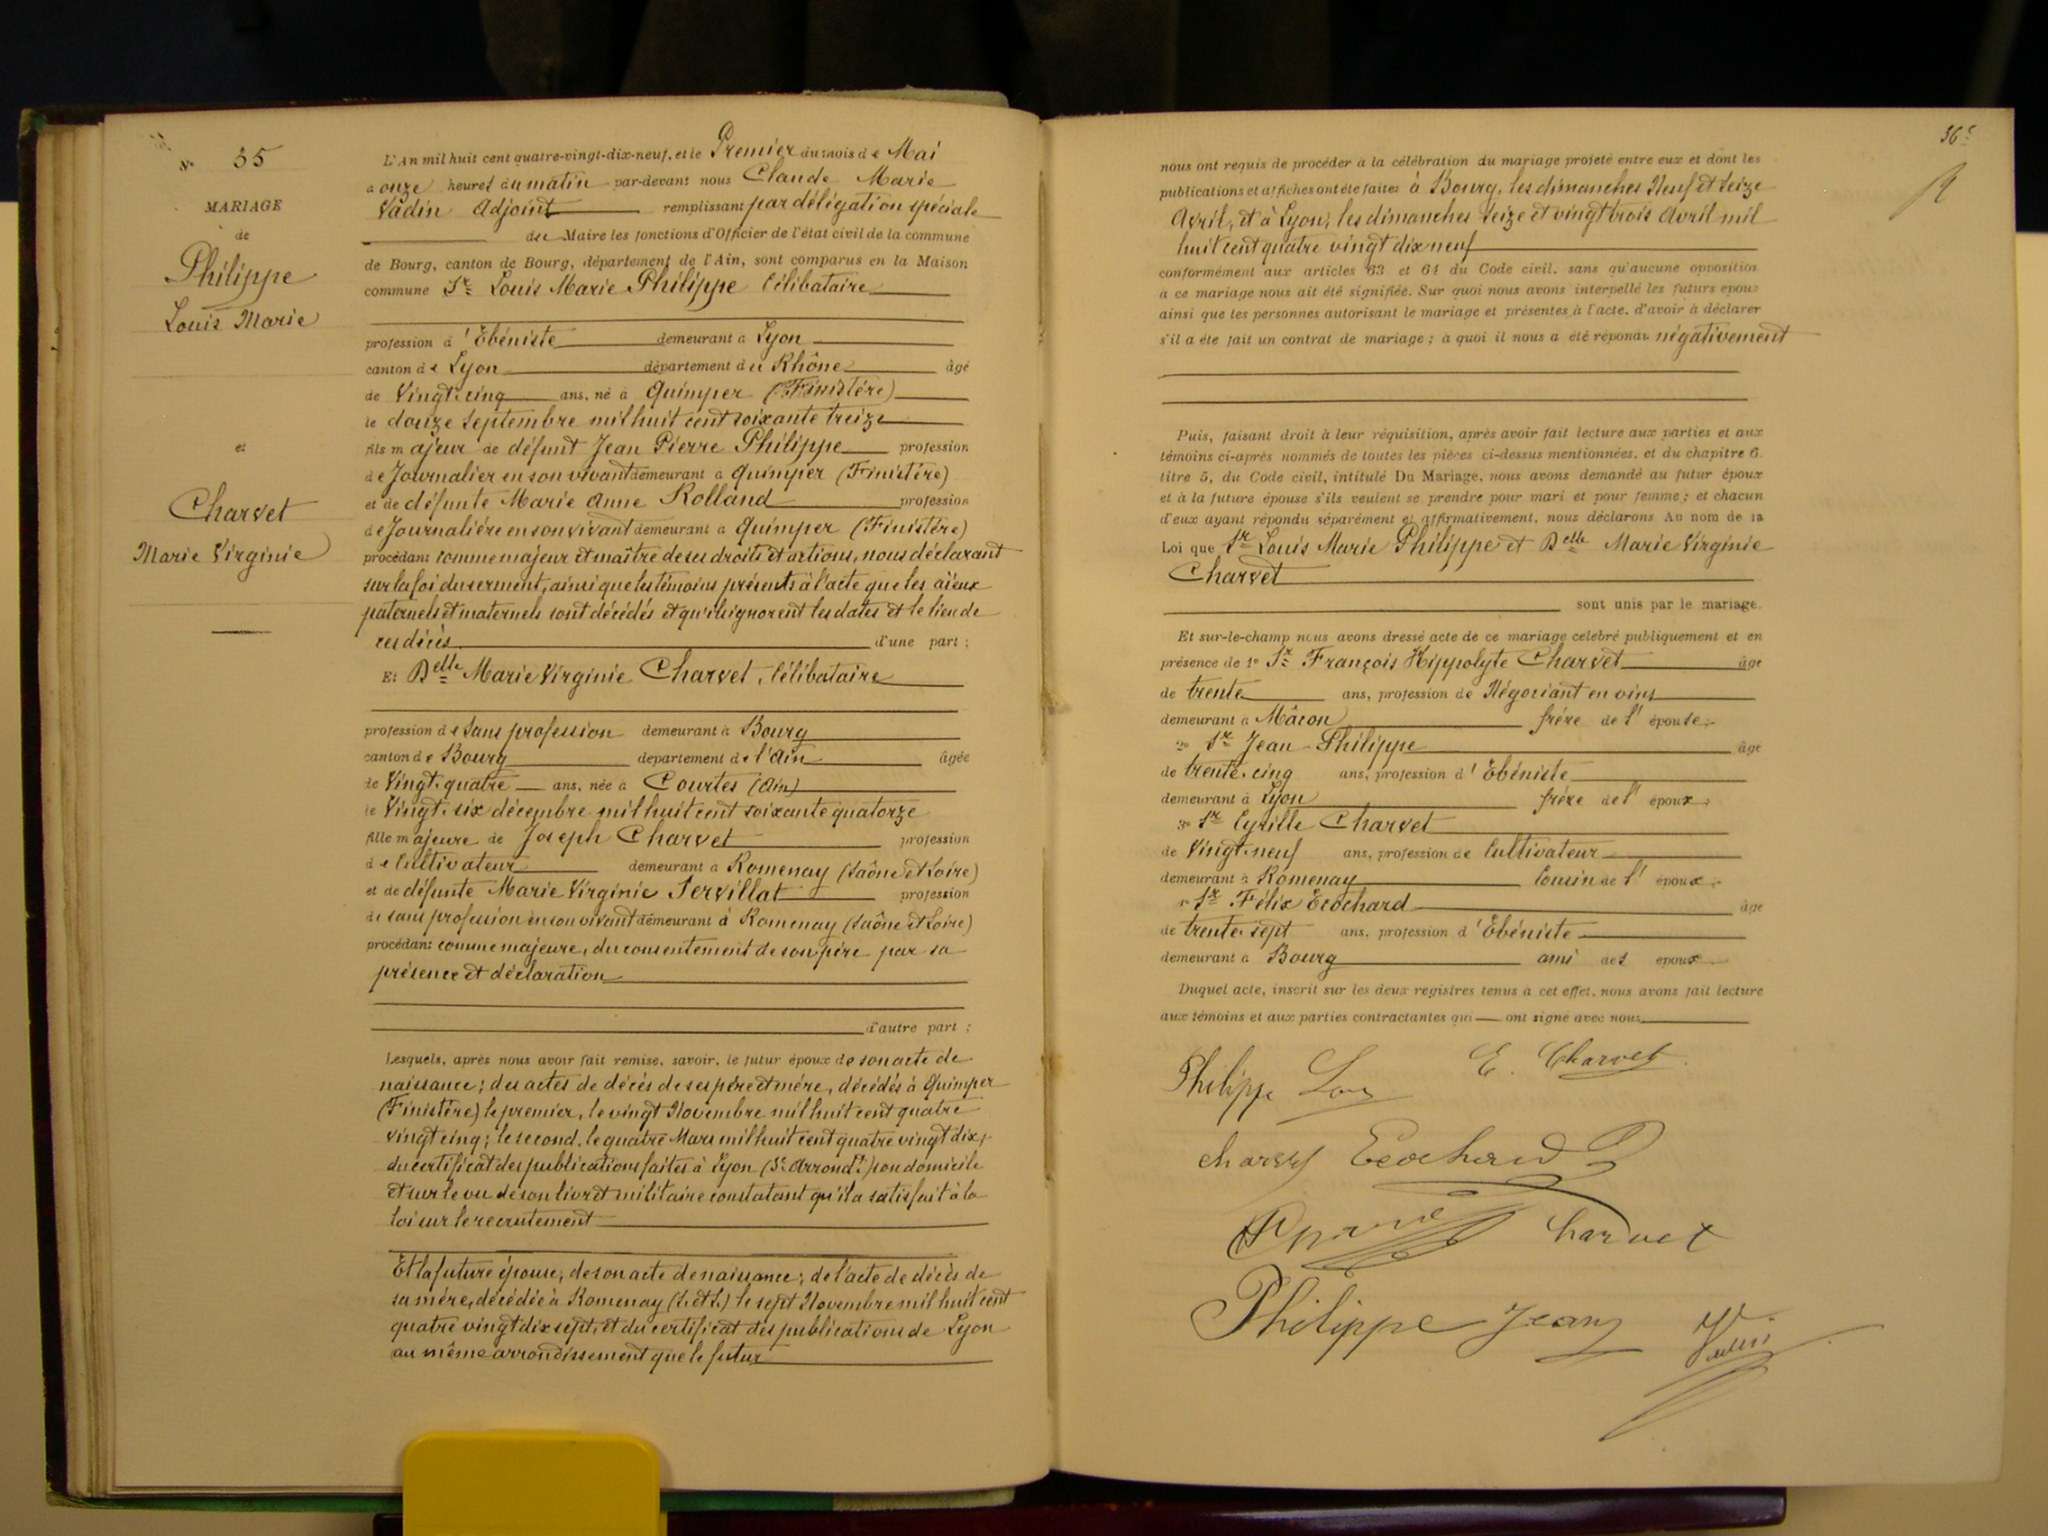 N° 35
MARIAGE
de
Philippe
Louis Marie
et
Charvet
Marie Virginie
L'An mil huit cent quatre-vingt-dix-neuf, et le Premier du mois de Mai
à onze heures du matin par-devant nous Claude Marie
Vadin Adjoint remplissant par délégation spéciale
du Maire les fonctions d'Officier de l'état civil de la commune
de Bourg, canton de Bourg, département de l'Ain, sont comparus en la Maison
commune Sr Louis Marie Philippe Célibataire
profession d'Ebéniste demeurant à Lyon
canton de Lyon département du Rhône âgé
de Vingt-cinq ans, né à Quimper (Finistère)
le douze Septembre mil huit cent soixante treize
fils majeur de défunt Jean Pierre Philippe profession
de Journalier en son vivant demeurant à Quimper (Finistère)
et de défunte Marie Anne Rolland profession
de Journalière en son vivant demeurant à Quimper (Finistère)
procédant comme majeur et maître de ses droits et actions, nous déclarant
sur la foi du serment, ainsi que les témoins présents à l'acte que les aïeux
paternels et maternels sont décédés et qu'ils ignorent les dates et le lieu de
ces décès d'une part ;
Et Delle Marie Virginie Charvet, Célibataire
profession de Sans profession demeurant à Bourg
canton de Bourg département de l'Ain âgée
de Vingt-quatre ans, née à Courtes (Ain)
le Vingt-six décembre mil huit cent soixante quatorze
fille majeure de Joseph Charvet profession
de Cultivateur demeurant à Romenay (Saône et Loire)
et de défunte Marie Virginie Servillat profession
de sans profession en son vivant demeurant à Romenay (Saône et Loire)
procédant comme majeure, du consentement de son père par sa
présence et déclaration
d'autre part ;
Lesquels, après nous avoir fait remise, savoir, le futur époux de son acte de
naissance ; des actes de décès de ses père et mère, décédés à Quimper
(Finistère) le premier, le vingt Novembre mil huit cent quatre
vingt cinq ; le second, le quatre Mars mil huit cent quatre vingt dix,
du certificat des publications faites à Lyon (3e Arrondt) son domicile
et sur le vu de son livret militaire constatant qu'il a satisfait à la
loi sur le recrutement
Et la future épouse, de son acte de naissance ; de l'acte de décès de
sa mère, décédée à Romenay (S. et L.) le sept Novembre mil huit cent
quatre vingt dix sept, et du certificat des publications de Lyon
au même arrondissement que le futur
36
nous ont requis de procéder à la célébration du mariage projeté entre eux et dont les
publications et affiches ont été faites à Bourg, les dimanches Neuf et Seize
Avril, et à Lyon, les dimanches Seize et vingt trois Avril mil
huit cent quatre vingt dix neuf
conformément aux articles 63 et 64 du Code civil, sans qu'aucune opposition
à ce mariage nous ait été signifiée. Sur quoi nous avons interpellé les futurs époux
ainsi que les personnes autorisant le mariage et présentes à l'acte, d'avoir à déclarer
s'il a été fait un contrat de mariage ; à quoi il nous a été répondu négativement
Puis, faisant droit à leur réquisition, après avoir fait lecture aux parties et aux
témoins ci-après nommés de toutes les pièces ci-dessus mentionnées, et du chapitre 6.
titre 5, du Code civil, intitulé Du Mariage, nous avons demandé au futur époux
et à la future épouse s'ils veulent se prendre pour mari et pour femme ; et chacun
d'eux ayant répondu séparément et affirmativement, nous déclarons Au nom de la
Loi que Sr Louis Marie Philippe et Delle Marie Virginie
Charvet
sont unis par le mariage.
Et sur-le-champ nous avons dressé acte de ce mariage célébré publiquement et en
présence de 1° Sr François Hippolyte Charvet âgé
de trente ans, profession de Négociant en vins
demeurant à Mâcon frère de l'épouse
2° Sr Jean Philippe âgé
de trente-cinq ans, profession d'Ebéniste
demeurant à Lyon frère de l'époux
3° Sr Cyrille Charvet
de Vingt-neuf ans, profession de Cultivateur
demeurant à Romenay Cousin de l'époux
Sr Félix Ecochard âgé
de trente-sept ans, profession d'Ebéniste
demeurant à Bourg ami des époux
Duquel acte, inscrit sur les deux registres tenus à cet effet, nous avons fait lecture
aux témoins et aux parties contractantes qui ont signé avec nous
Philippe Louis E. Charvet
Charvet Ecochard
Charvet
Philippe Jean